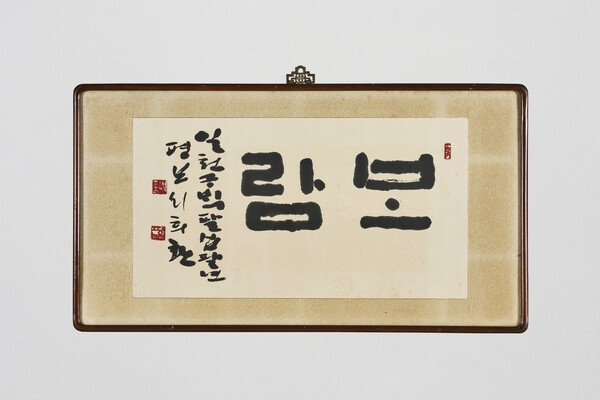 보람
일천구백팔십팔년
평보 서희환